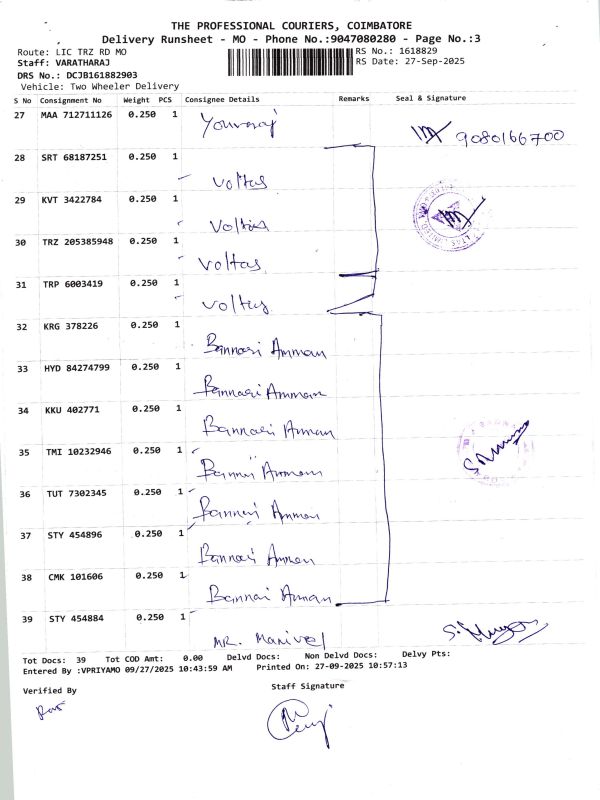 THE PROFESSIONAL COURIERS, COIMBATORE
Delivery Runsheet - MO - Phone No.:9047080280 - Page No.:3
Route: LIC TRZ RD MO
RS No.: 1618829
Staff: VARATHARAJ
RS Date: 27-Sep-2025
DRS No.: DCJB161882903
Vehicle: Two Wheeler Delivery
S No Consignment No Weight PCS Consignee Details Remarks Seal & Signature
27 MAA 712711126 0.250 1
9080166700
28 SRT 68187251 0.250 1
Voltas
29 KVT 3422784 0.250 1
Voltas
30 TRZ 205385948 0.250 1
Voltas
31 TRP 6003419 0.250 1
Voltas
32 KRG 378226 0.250 1
Bannari Amman
33 HYD 84274799 0.250 1
Bannari Amman
34 KKU 402771 0.250 1
Bannari Amman
35 TMI 10232946 0.250 1
Bannari Amman
36 TUT 7302345 0.250 1
Bannari Amman
37 STY 454896 0.250 1
Bannari Amman
38 CMK 101606 0.250 1
Bannari Amman
39 STY 454884 0.250 1
MR. Manivel
Tot Docs: 39 Tot COD Amt: 0.00 Delvd Docs: Non Delvd Docs: Delvy Pts:
Entered By :VPRIYAMO 09/27/2025 10:43:59 AM Printed On: 27-09-2025 10:57:13
Verified By
Staff Signature